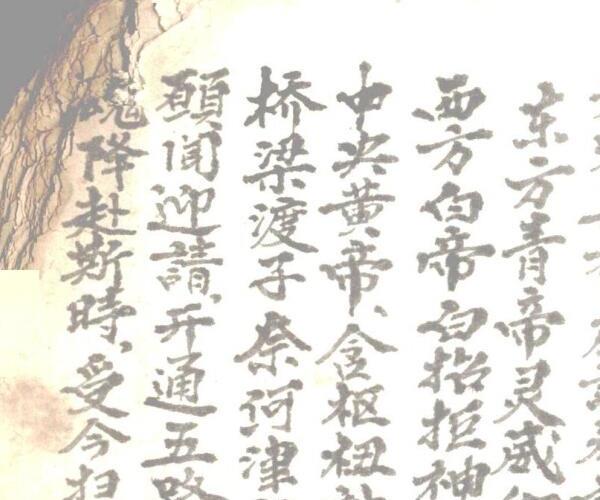 东方青帝灵威
西方白帝白招拒神
中央黄帝、含枢纽
桥梁渡子奈河津
願闻迎請、开通五路
魂降赴斯時、受今扫